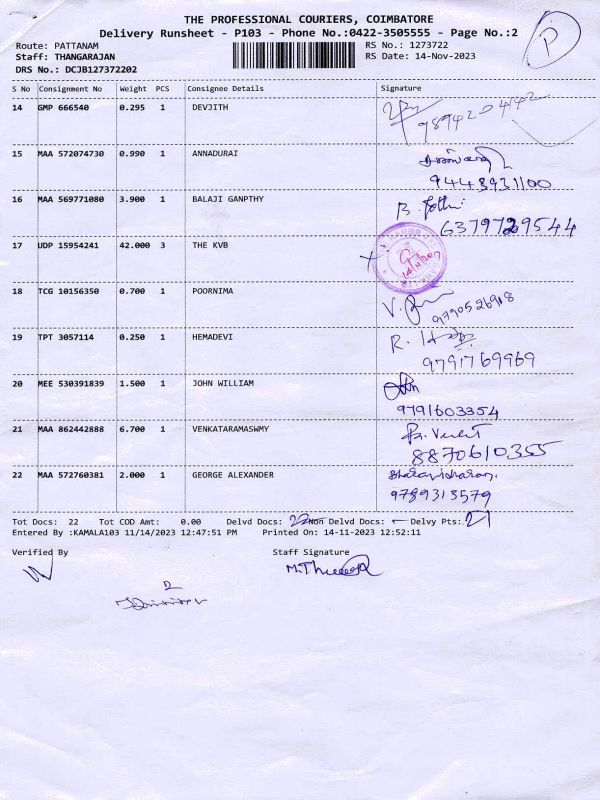 THE PROFESSIONAL COURIERS, COIMBATORE
Delivery Runsheet - P103 - Phone No.:0422-3505555 - Page No.:2
P
Route: PATTANAM
RS No.: 1273722
Staff: THANGARAJAN
RS Date: 14-Nov-2023
DRS No.: DCJB127372202
S No Consignment No Weight PCS Consignee Details Signature
14 GMP 666540 0.295 1 DEVJITH
9894204142
15 MAA 572074730 0.990 1 ANNADURAI
9443931100
16 MAA 569771080 3.900 1 BALAJI GANPTHY
6379729544
17 UDP 15954241 42.000 3 THE KVB
18 TCG 10156350 0.700 1 POORNIMA
9790526918
19 TPT 3057114 0.250 1 HEMADEVI
9791769969
20 MEE 530391839 1.500 1 JOHN WILLIAM
9791603354
21 MAA 862442888 6.700 1 VENKATARAMASWMY
8870610355
22 MAA 572760381 2.000 1 GEORGE ALEXANDER
9789313579
Tot Docs: 22 Tot COD Amt: 0.00 Delvd Docs: 22 Non Delvd Docs: - Delvy Pts: 21
Entered By :KAMALA103 11/14/2023 12:47:51 PM Printed On: 14-11-2023 12:52:11
Verified By Staff Signature